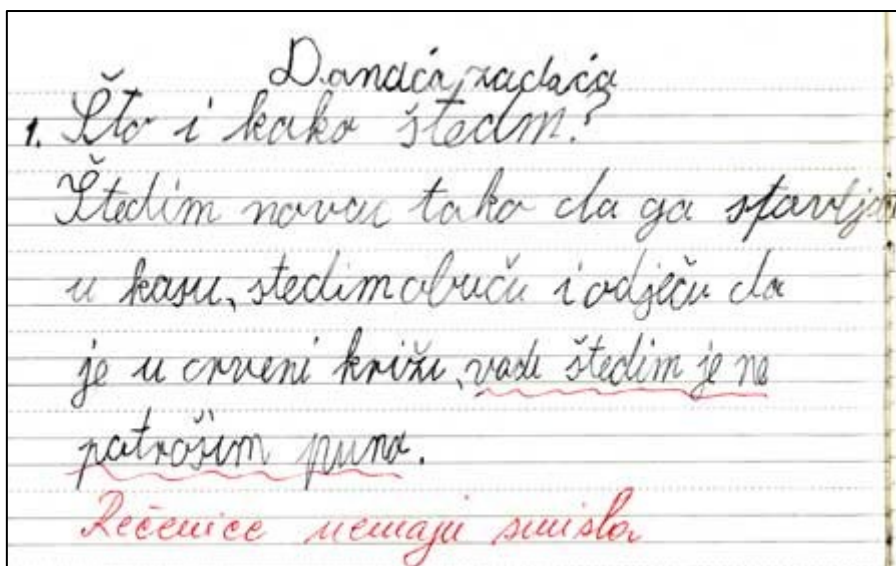 Danaća zadaća
1. Što i kako štedm?
Štedim novac tako da ga stavljam
u kasu, stedim obuču i odječu da
je u crveni križi, vadu štedim je ne
patrošim puno.
Rečenice nemaju smisla